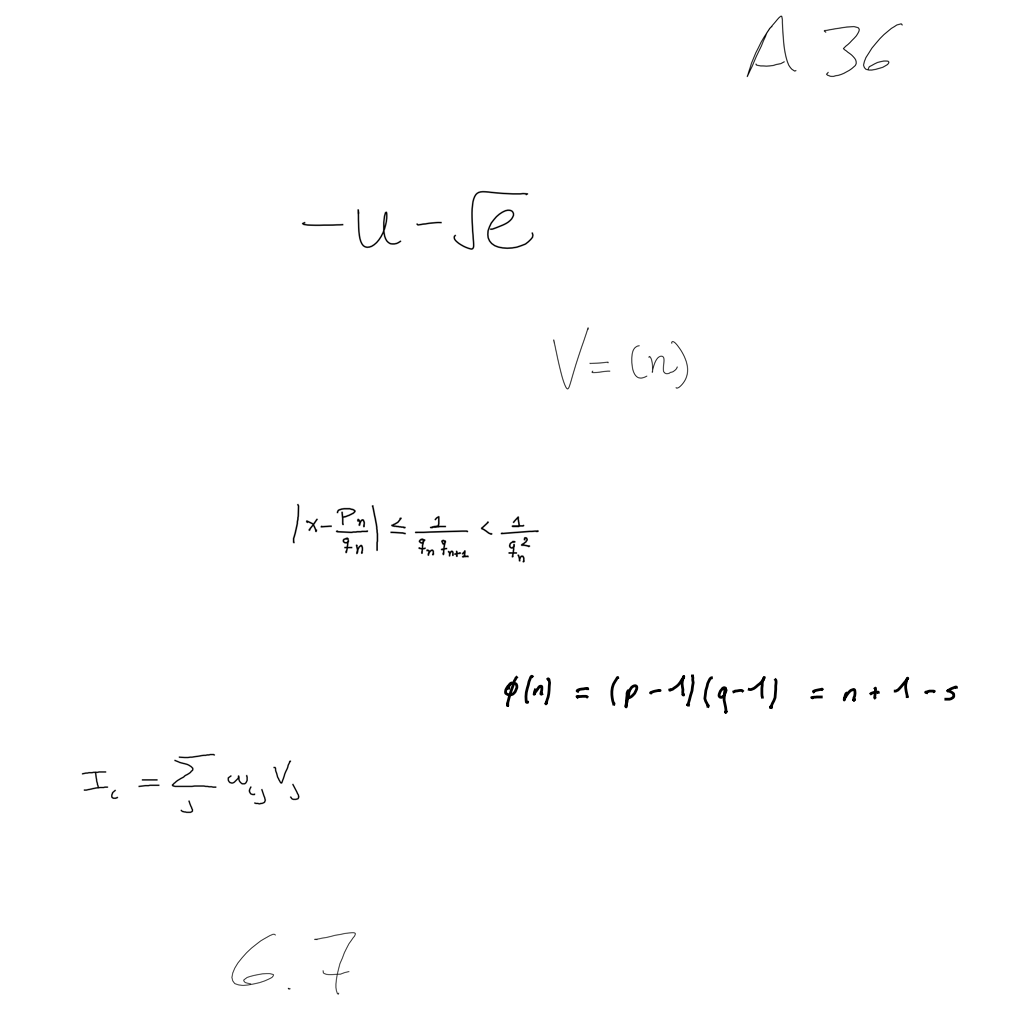 A 36
-u-√e
V=(n)
|x-Pn/qn| ≤ 1/(qn qn+1) < 1/qn^2
ϕ(n) = (p-1)(q-1) = n+1-s
I_i = ∑_j ω_ij V_j
6.7